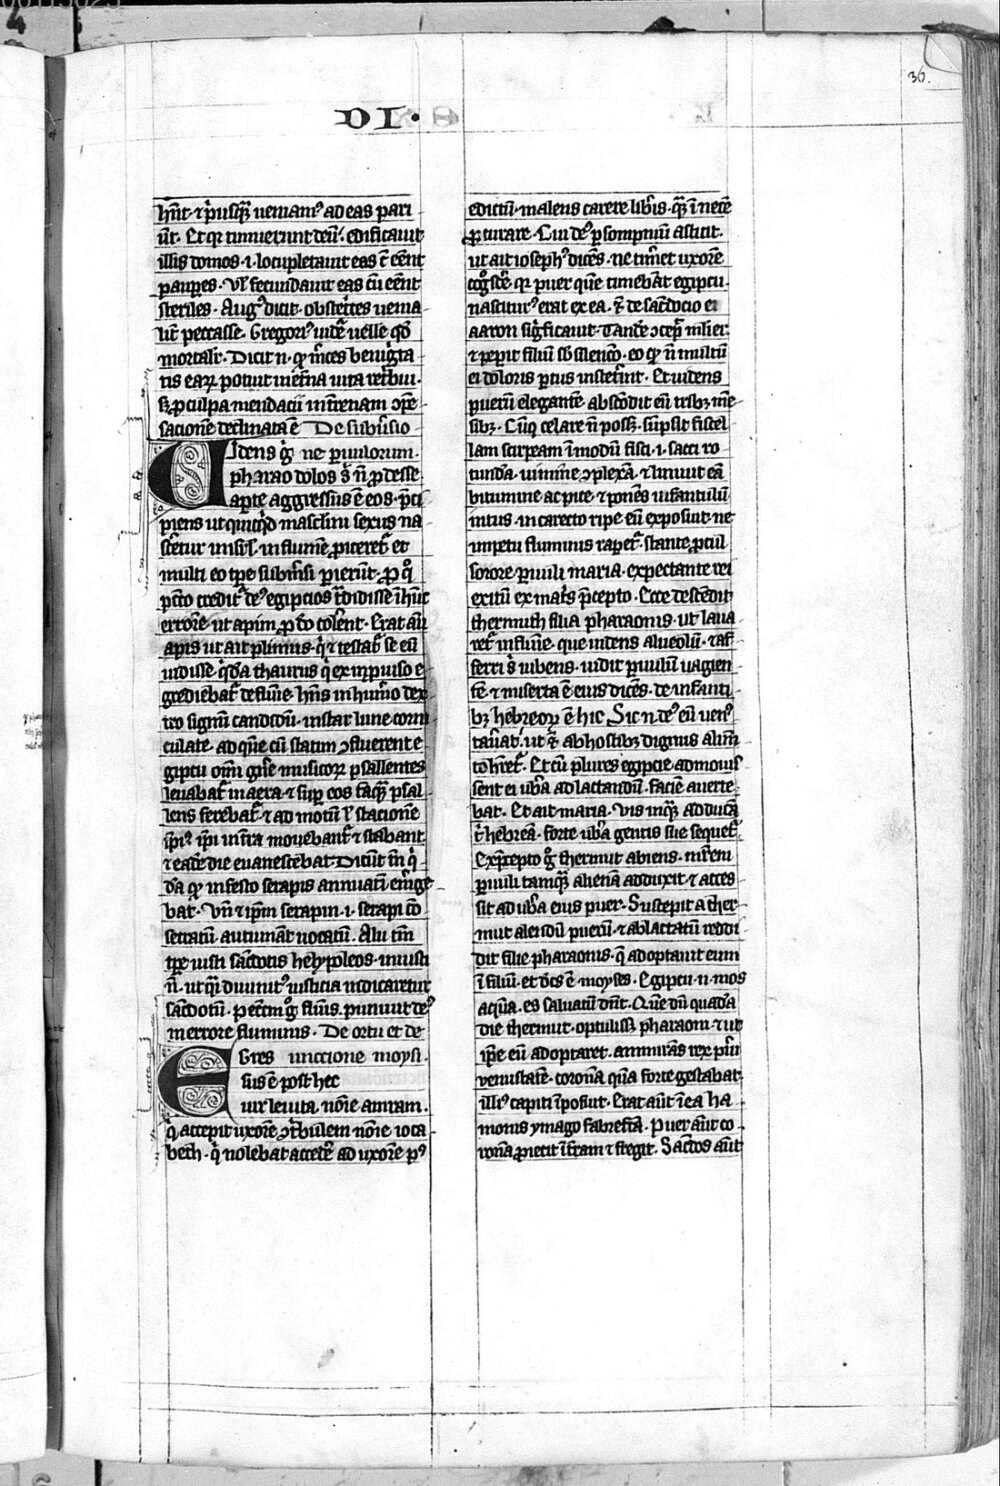 36.
VI.
hn̄t ⁊ p̄usq̄ꝫ ueniamꝰ ad eas pari
ūt. Et qꝛ timuerunt deū. edificauit
illis domos .i. locupletauit eas cū eēnt
paup̄es. Vꝉ fecundauit eas cū eēnt
steriles. Augꝰ dicit. obstet̄ces uenia
lit̄ peccasse. Gregoriꝰ uidet̄ uelle qd̄
mortalit̄. Dicit n̄. qꝫ m̄ces beniḡta
tis eaꝝ potuit in et̄na uita ret̄bui.
sꝫ ꝑ culpa mendacii in t̄renam ꝯpē
sacionē declinata ē De subm̄sio
Videns ḡ ne puulorum.
pharao dolos s̄ n̄ ꝓdesse
aꝑte aggressus ē eos. p̄ci
piens ut quicq̄d masclini sexus na
sc̄etur in isr̄l. in flumē ꝓiceret̄ et
multi eo tp̄e subm̄si pierūt. ꝓ qͦ
pc̄cō credit̄ deꝰ egipcios t̄didisse ī hūc
errorē ut apim ꝓ dō colerent. Erat aū
apis ut ait plinius. q̄ ⁊ testat̄ se eū
uidisse. q̄dā thaurus q̄ ex inꝓuiso e
grediebat̄ de flumīe. hn̄s in hum̄o dex
tro signū candidū. instar lune corni
culate. ad quē cū statim ꝯfluerent e
giptii om̄i gn̄e musicoꝝ psallentes
leuabat̄ in aera ⁊ sup̄ eos q̄ꝫ psal
lens ferebat̄. ⁊ ad motū ꝉ stacionē
ip̄iꝰ ip̄i in t̄ra mouebant̄ ⁊ stabant.
⁊ eadē die euanescebat. Dicūt tn̄ q̄
dā qꝫ in festo serapis annuati emge
bat. Vn̄ ⁊ ip̄m serapin .i. serapi cō
secratū autumāt uocatū. Alii tn̄
tp̄e iusti sac̄dotis helyopoleos. iniusti
n̄. ut q̄i diuinitꝰ iusticia uēdicaretur
sac̄dotū. pctm̄ ḡ fluīs. puniuit deꝰ
in errore fluminis. De ortu et de
Egres unccione moysi.
sus ē post hec
uir leuita. noīe amram.
q̄ accepit uxorē ꝯt̄bulem noīe ioca
beth. q̄ nolebat accedē ad uxorē pꝰ
edictū. malens carere lib̄is. q̄ꝫ ī necē
ꝓcurare. Cui deꝰ p sompnium astitit.
ut ait iosephꝰ dicēs. ne tim̄et uxorē
coḡsc̄e. qꝛ puer quē timebāt egiptii
nascitur̄ꝰ erat ex ea. ⁊ de sac̄docio eī
aaron siḡficauit. Tandē ꝯcep̄ mlier
⁊ pep̄it filiū sb̄ silencio. eo qꝫ n̄ multū
ei doloris p̄tus intulerint. Et uidens
puerū elegantē. abscōdit eū tribꝫ mē
sibꝫ. Cūqꝫ celare n̄ posset. sūpsit fiscel
lam scirpeam ī modū fisci .i. sacci ro
tunda. uimine ꝯplexā. ⁊ liniuit eā
bitumine ac pice. ⁊ ponēs infantulū
intus. in carecto ripe eū exposuit. ne
impetu fluminis rapet̄. stante ꝓcul
sorore puuli maria. expectante rei
exitū ex mat̄s p̄cepto. Ecce descēdit
thermuth filia pharaonis. ut laua
ret̄ in flumīe. que uidens alueolū. ⁊ af
ferri s̄ iubens. uidit puulū uagien
tē ⁊ miserta ē eius dicēs. de infanti
bꝫ hebreoꝝ ē hic. Sic n̄ deꝰ eū uenꝰ
tauat̄. ut ⁊ ab hostibꝫ dignus alim̄
to hr̄et̄. Et cū plures egipcie admouis
sent ei ub̄a ad lactandū. faciē auerte
bat. Et ait maria. Vis inq̄t adducā
t̄ hebreā. forte ub̄a gentis sue sequet̄.
Ex p̄cepto ḡ thermut abiens. mr̄em
puuli tamq̄ꝫ alienā adduxit. ⁊ acces
sit ad ub̄a eius puer. Suscepit a ther
mut alendū puerū. ⁊ ablactatū reddi
dit filie pharaonis. q̄ adoptauit eum
ī filiū. et dc̄s ē moyses. Egiptii .n. mos
aquā. es saluatū dn̄t. Quē dū quadā
die thermut. optulisset pharaoni. ⁊ ut
ip̄e eū adoptaret. ammirās rex pūi
venustatē. coronā quā forte gestabat.
illiꝰ capiti īposuit. Erat aūt in ea ha
monis ymago fabrefc̄a. Puer aūt co
ronā ꝓiecit ī t̄ram ⁊ fregit. Sac̄dos aūt